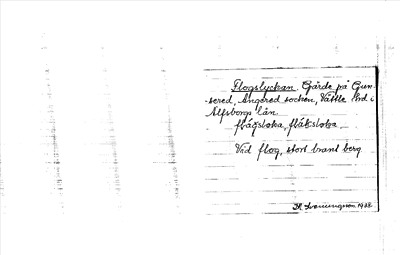 Flogslyckan. Gärde på Gun-
nered, Angered socken, Vättle hd i
Älfsborgs län.
flågsloka, flåksloka
Vid flog, stort brant berg
1928